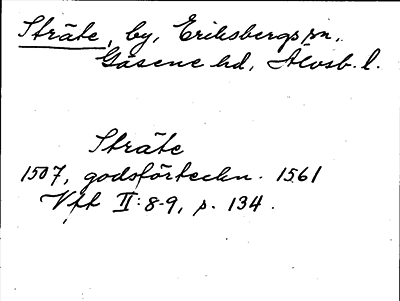 Sträte, by, Eriksbergs sn.
Gäsene hd, Älvsb. l.
Sträte
1507, godsförteckn. 1561
Vft II:8-9, p. 134.